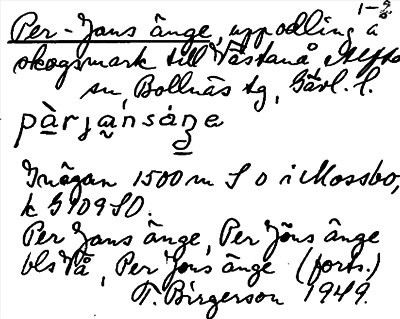 1-2/8
Per-Jans änge, uppodling å
skogsmark till Västanå Alfta
sn, Bollnäs tg, Gävl. l.
pàrjànsáŋe
Inägan 1500 m S O i Mossbo,
k G 109 S D.
Per Jans änge, Per Jöns änge
bls Vå, Per Jons änge (forts.)
T. Birgerson 1949.